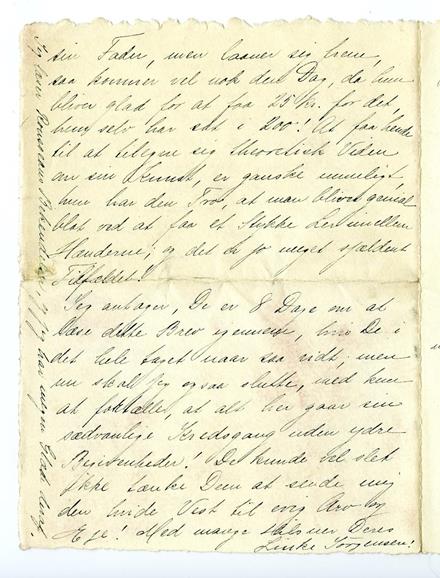 sin Fader, men laaner sig frem,
saa kommer vel nok den Dag, da hun
bliver glad for at faa 25 Kr. for det,
hun selv har sat i 200! At faa hende
til at tilegne sig theoretisk Viden
om sin Kunst, er ganske umuligt,
hun har den Tro, at man bliver genial
blot ved at faa et Stykke Ler imellem
Hænderne; og det er jo meget sjældent
Tilfældet!
Jeg antager, De er 8 Dage om at
læse dette Brev igennem, hvis De i
det hele taget naar saa vidt; men
nu skal jeg ogsaa slutte, med kun
at fortælle, at alt her gaar sin
sædvanlige Kredsgang uden ydre
Begivenheder! De kunde vel slet
ikke tænke Dem at sende mig
den hvide Vest til evig Arv og
Eje! Med mange Hilsner Deres
Jørgensen!
Jeg læser Rousseaus Bekendelser, og jeg har megen Glæde deraf.